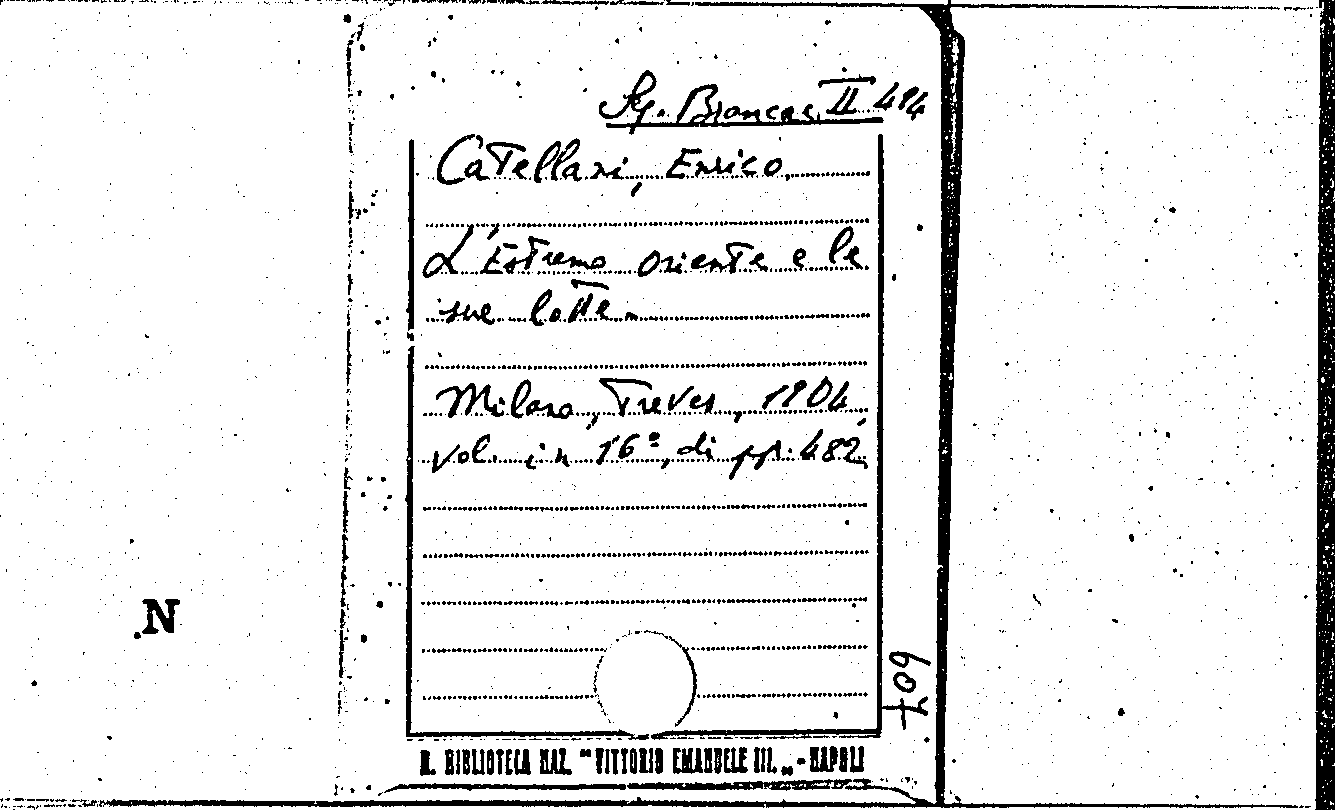 Sg. Brancac. II 494
Catellani, Enrico.
L'Estremo Oriente e le
sue lotte.
Milano, Treves, 1904,
vol. in 16º, di pp. 482
N
R. BIBLIOTECA NAZ. "VITTORIO EMANUELE III." - NAPOLI